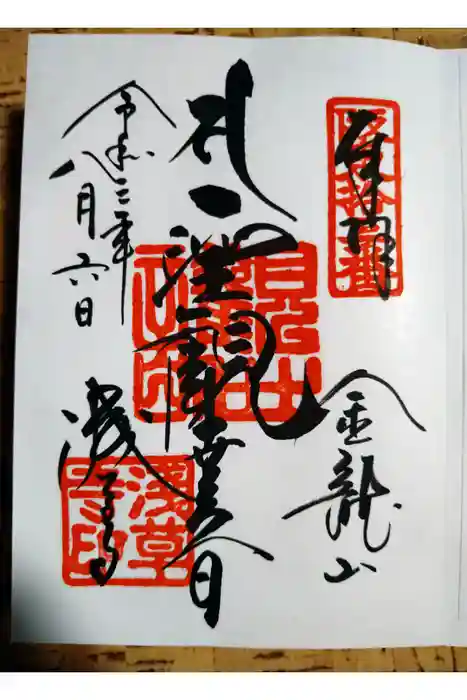 奉拝
金龍山
聖観世音
令和三年
八月六日
浅草寺
浅草寺印